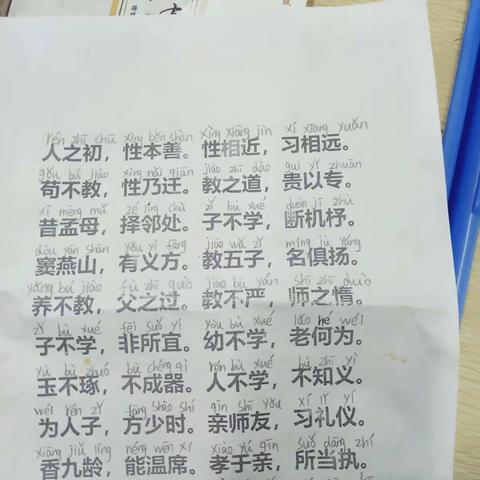 rén zhī chū xìng běn shàn xìng xiāng jìn xí xiāng yuǎn
人之初，性本善。性相近，习相远。
gǒu bú jiào xìng nǎi qiān jiào zhī dào guì yǐ zhuān
苟不教，性乃迁。教之道，贵以专。
xī mèng mǔ zé lín chù zǐ bù xué duàn jī zhù
昔孟母，择邻处。子不学，断机杼。
dòu yān shān yǒu yì fāng jiào wǔ zǐ míng jù yáng
窦燕山，有义方。教五子，名俱扬。
yǎng bú jiào fù zhī guò jiào bù yán shī zhī duò
养不教，父之过。教不严，师之惰。
zǐ bù xué fēi suǒ yí yòu bù xué lǎo hé wéi
子不学，非所宜。幼不学，老何为。
yù bù zhuó bù chéng qì rén bù xué bù zhī yì
玉不琢，不成器。人不学，不知义。
wéi rén zǐ fāng shào shí qīn shī yǒu xí lǐ yí
为人子，方少时。亲师友，习礼仪。
xiāng jiǔ líng néng wēn xí xiào yú qīn suǒ dāng zhí
香九龄，能温席。孝于亲，所当执。